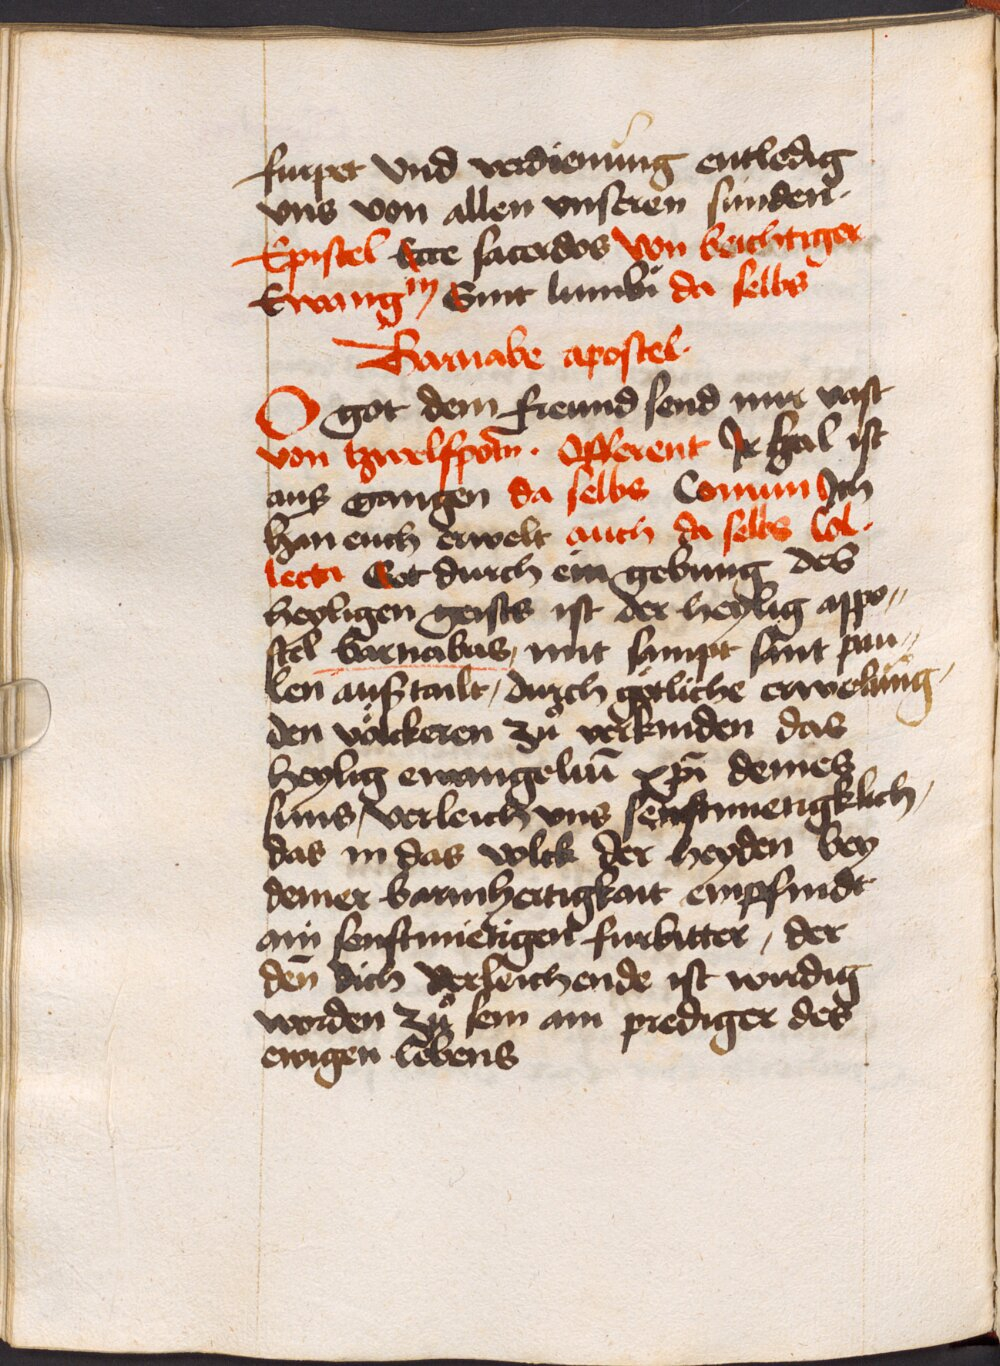 furpet vnd verdienung entledig
vns von allen vnseren sunden.
Epistel Ecce sacerdos Von beichtiger
Ewangm Sint lumbi da selbs
Barnabe apostel.
O got dem freund send mir vast
von tzwelfpotn. Offerent Jr hal ist
auß gangen da selbs Comun Ich
han euch erwelt auch da selbs Col-
lecta Got durch ein gebung des
heyligen geists ist der heylig appo„
stel barnabas, mit sampt sant pau„
len außtailt, durch götliche erwelung,
den völckeren zů verkunden das
heylig ewangeliū xp̄i deines
suns, verleich vns senftmuetigklich,
das in das volck der heyden bey
deiner barmhertigkait empfindt
ain senftmietigen furbitter, der
den dich verleichende ist wirdig
worden zů sein ain prediger des
ewigen lebens